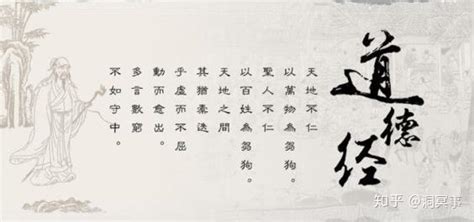 道德经
天地不仁
以萬物為芻狗。
聖人不仁
以百姓為芻狗。
天地之間
其猶
乎虛而不屈
動而愈出。
多言數窮
不如守中。
知乎 @洞冥事